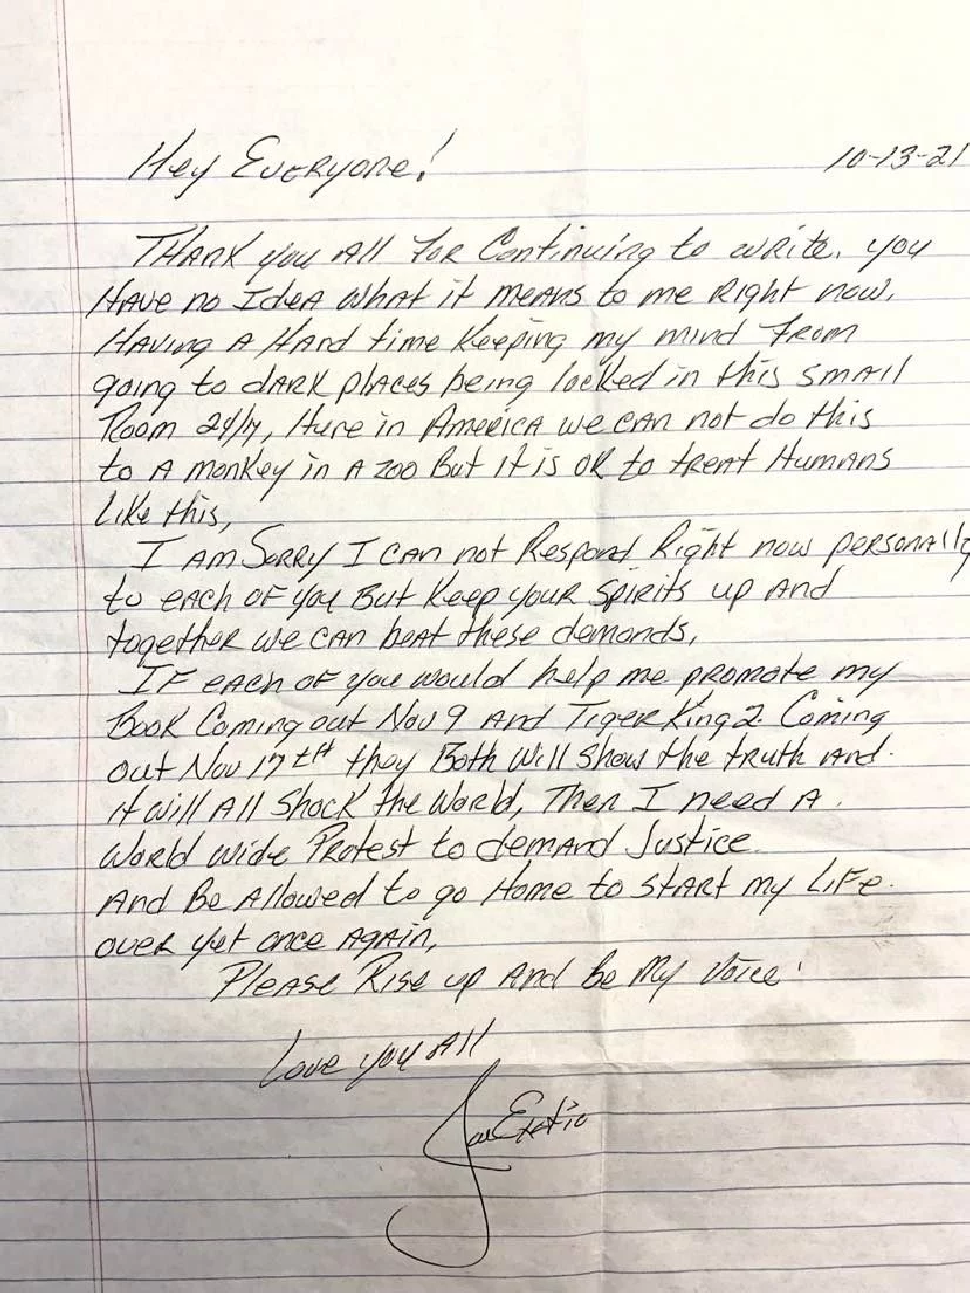 Hey Everyone!
10-13-21
Thank you All For Continuing to write. you
Have no Idea what it means to me Right now.
Having A Hard time Keeping my mind From
going to dark places being locked in this small
Room 24/7, Here in America we can not do this
to A monkey in A zoo But it is ok to treat Humans
Like this,
I am Sorry I can not Respond Right now personally
to each of you But Keep your spirits up and
together we can beat these demands,
If each of you would help me promote my
Book Coming out Nov 9 and Tiger King 2. Coming
out Nov 17th they Both Will Show the truth and
it will All Shock the World, Then I need A
World wide Protest to demand Justice
And Be Allowed to go Home to start my Life
over yet once Again,
Please Rise up And be My Voice!
Love you All
Joe Exotic